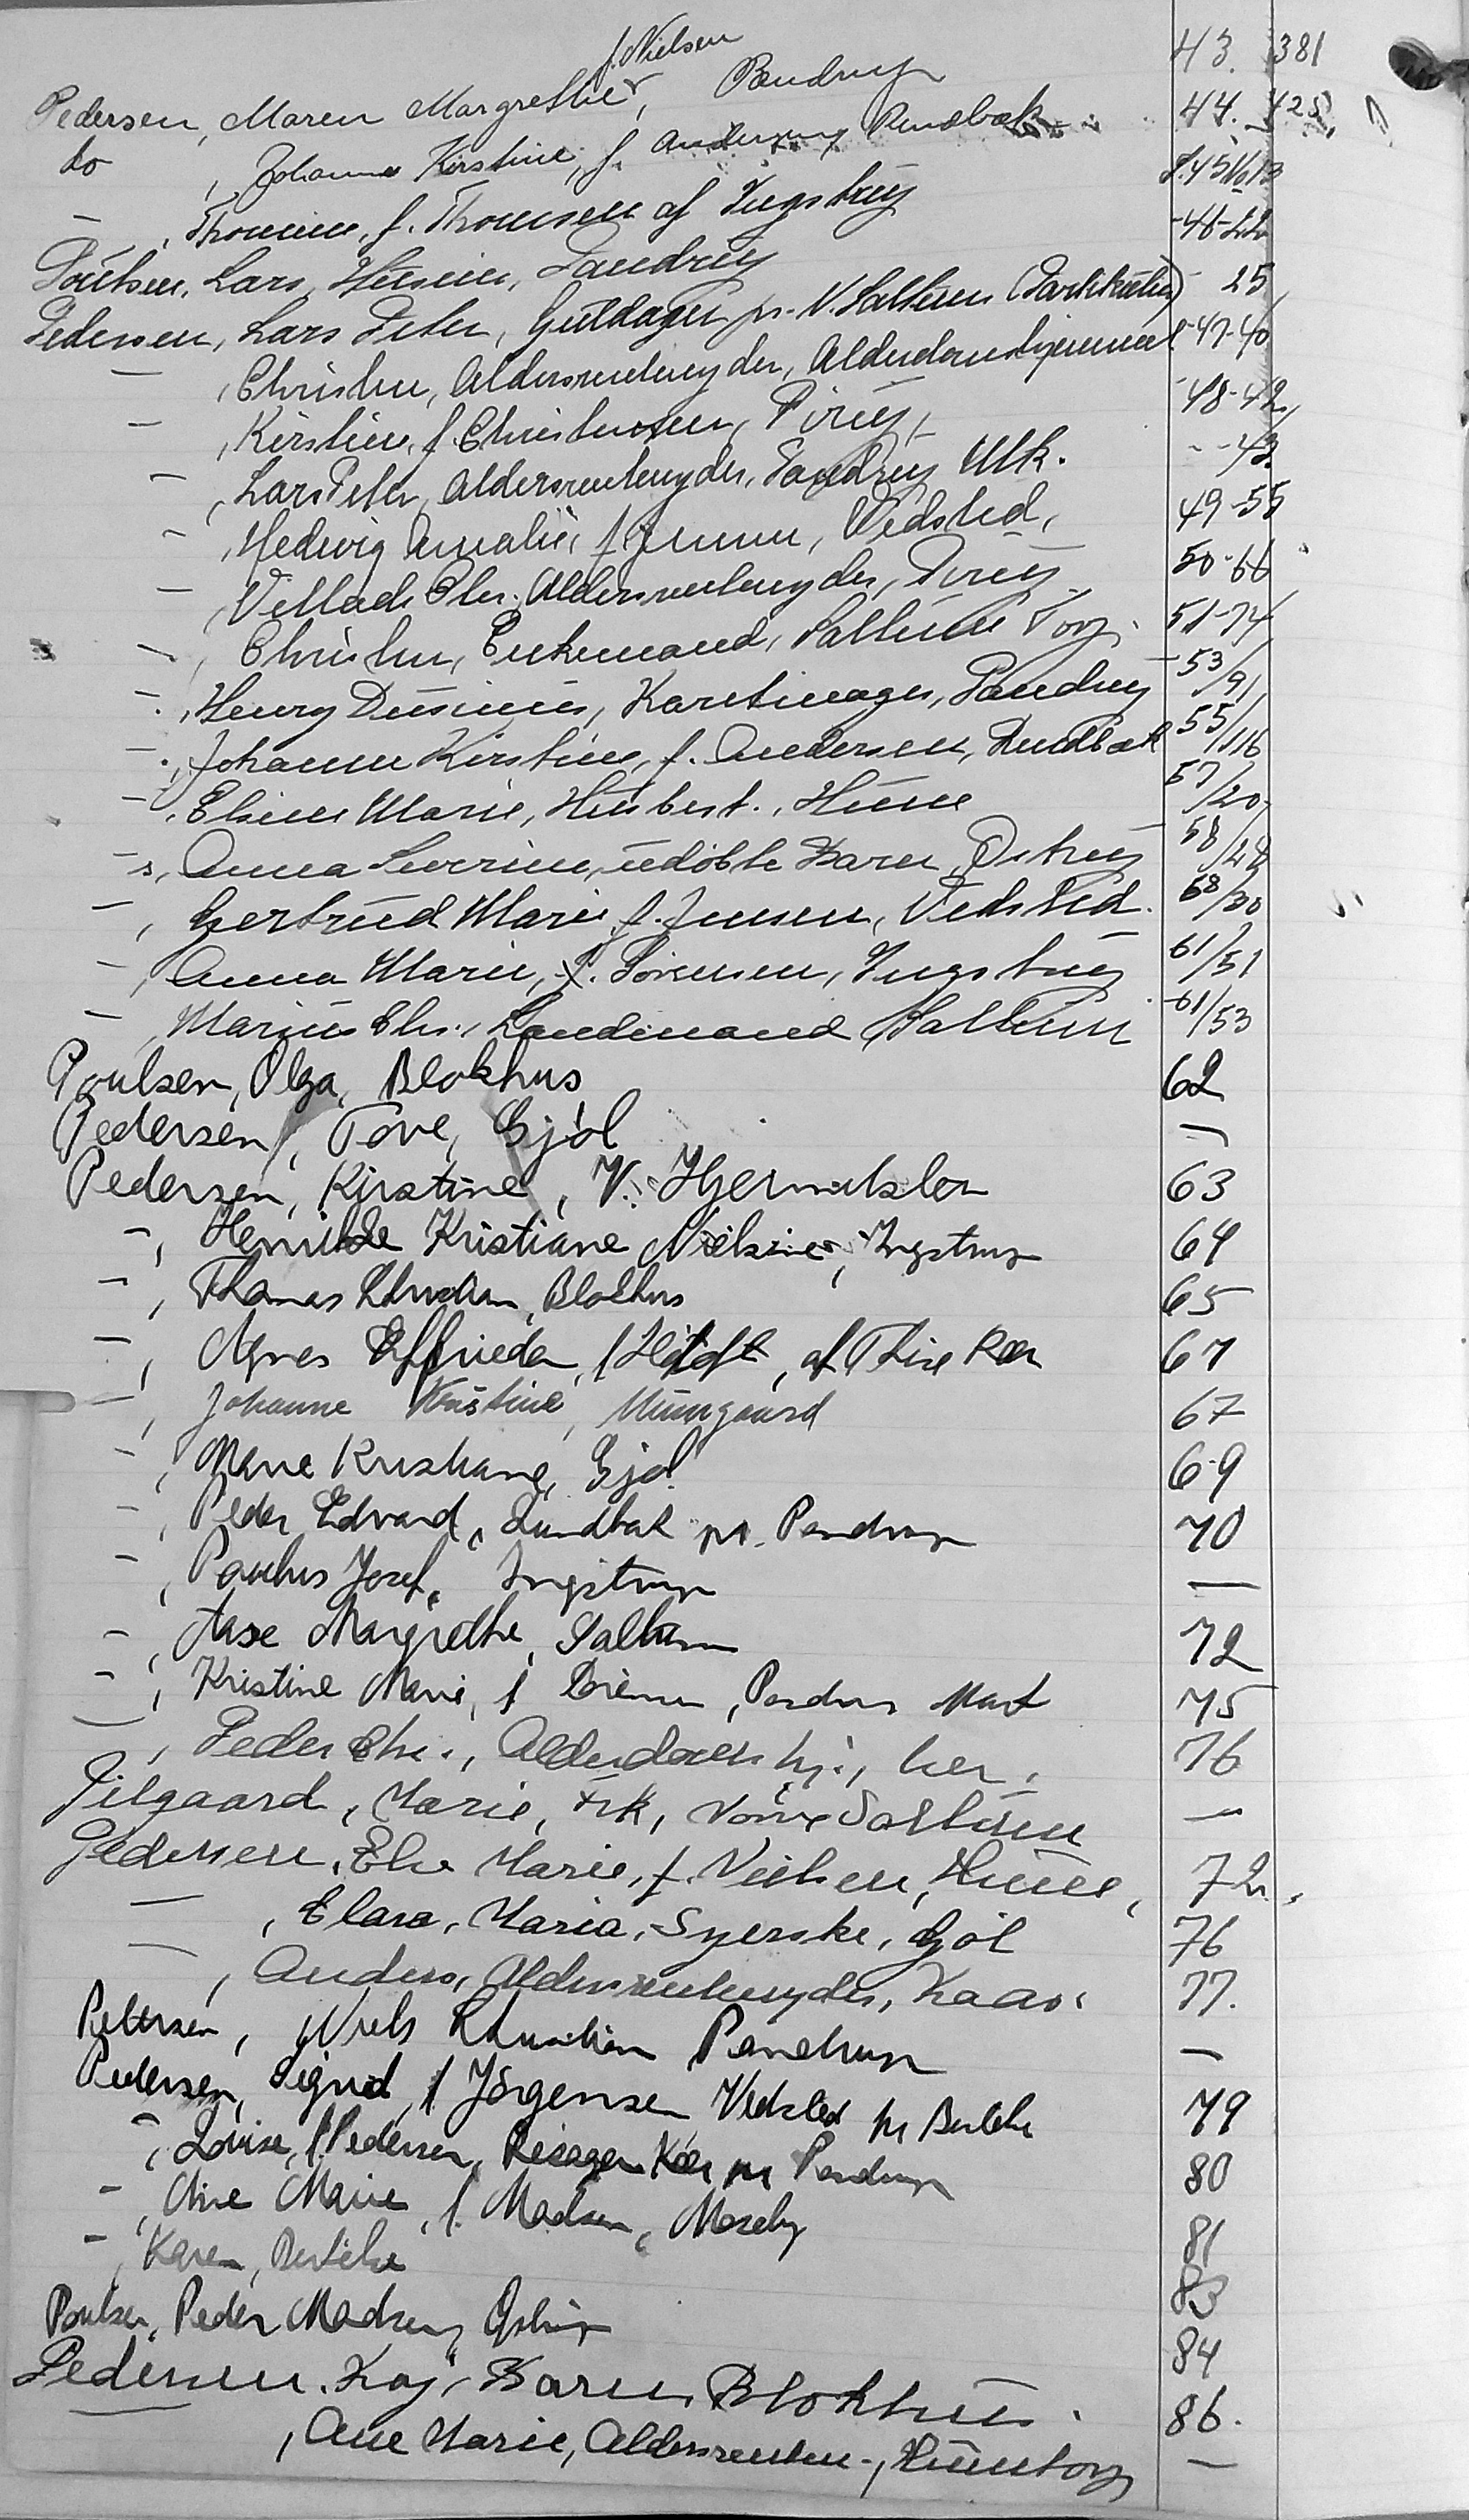 f. Nielsen
Pedersen, Maren Margrethe, Pandrup 43. 381
do, Johanne Kirstine, f. Andersen, Rendbæk 44. 425,
—, Thomine, f. Thomsen af Ingstrup S.45 No 13
Poulsen, Lars, Husum, Pandrup -46-22
Pedersen, Lars Peter, Guldager pr. V. Saltum (Partikulier) - 25
—, Christen, Aldersrentenyder, Alderdomshjemmet. -47-40
—, Kirstine, f. Christensen, Pirup, -48-42,
—, Lars Peter, Aldersrentenyder, Pandrup Mk. - - 43.
—, Hedvig Amalie, f. Jensen, Vedsted, 49-55
—, Villads Chr. Aldersrentenyder, Pirup 50-66
—, Christen, Enkemand, Saltum Torp. 51-74
—, Henry Dusinus, Karetmager, Pandrup 53/91
—, Johanne Kirstine, f. Andersen, Rendbæk 55/116
—, Elsine Marie, Husbest., Hune 57/20,
—, Anna Severine, udøbte Barn, Østrup 58/28
—, Gertrud Marie f. Jensen, Vedsted. 58/30
—, Anna Marie, f. Sørensen, Ingstrup 61/51
—, Marius Chr., Landmand, Saltum 61/53
Poulsen, Olga, Blokhus 62
Pedersen, Tove, Gjøl —
Pedersen, Kirstine, V. Hjermitslev 63
—, Henrikke Kristiane Nielsine, Ingstrup 64
—, Thomas Christian, Blokhus 65
—, Agnes Elfrieda, f Holdt, af Thise Kær 67
—, Johanne Kristine, Munngaard 67
—, Marie Kristiane, Gjøl 69
—, Peder Edvard, Lundbak pr. Pandrup 70
—, Paulus Josef, Ingstrup —
—, Aase Margrethe, Saltum 72
—, Kristine Marie, f Sørensen, Pandrup Mark 75
—, Peder Chr., Alderdomshj., her. 76
Pilgaard, Marie, Frk, Nørre Saltum —
Pedersen, Else Marie, f. Nielsen, Hune, 72.
—, Clara, Maria, Syerske, Gjøl 76
—, Anders, Aldersrentenyder, Kaas. 77.
Petersen, Niels Christian Pandrup —
Pedersen, Sigrid, f Jørgensen Vedsted pr Birkelse 79
—, Louise, f. Pedersen, Risager Kær pr Pandrup 80
—, Ane Marie, f. Madsen, Moseby 81
—, Karen, Birkelse 83
Poulsen, Peder Madsen, Østrup 84
Pedersen, Kaj, Barn, Blokhus. 86.
—, Ane Marie, Aldersrenten-, Hunetorp —